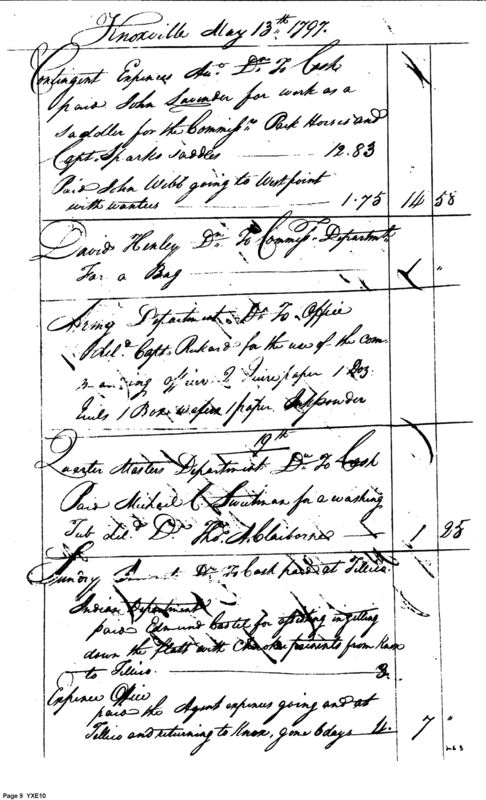 Knoxville May 13th 1797.
Contingent Expences Acco. Dr. To Cash
paid John Lavender for work as a
Saddler for the Commissrs. Pack Horses and
Capt. Sparks saddles 12.83
Paid John Webb going to Westpoint
with wanters 1.75 14 58
David Henley Dr. To Commiss. Departmt.
For a Bag "
Army Department Dr. To Office
deld. Capt. Rickard for the use of the com
manding officer 2 Quire paper 1 Doz.
Quils 1 Box wafers 1 paper Inkpowder
19th
Quarter Masters Department Dr. To Cash
Paid Michael C for a washing
Tub deld. Dr. Thos. A. Claiborne 1 25
Sundry Dr. To Cash paid at Tellico
Indian Department
paid Edmund for assisting in getting
down the flatts with Cherokee presents from Knox
to Tellico. 3.
Expence Office
paid the Agent expences going and at
Tellico and returning to Knox, gone 6 days 4. 7 "
Page 9 YXE10